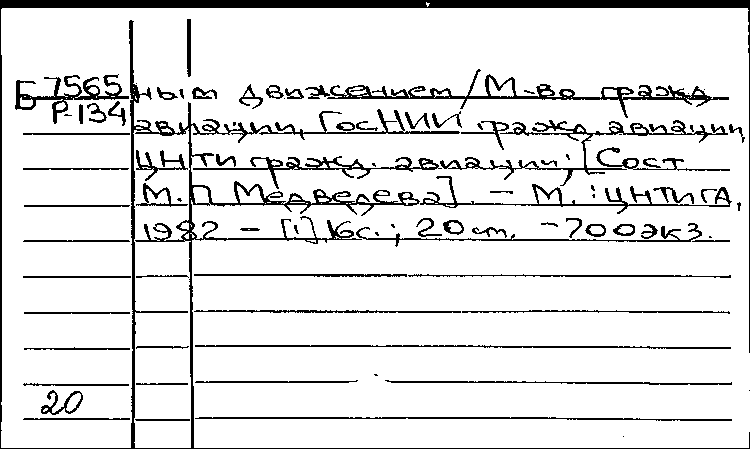 Б 7565 ным движением / М-во гражд
Р-134 авиации, ГосНИИ гражд. авиации,
ЦНТИ гражд. авиации; [Сост
М.П. Медведева]. – М. : ЦНТИГА,
1982 – [1], 16с. ; 20 см. – 700 экз.
20